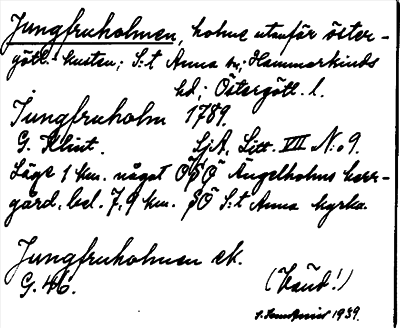 Jungfruholmen, holme utanför öster-
götl. kusten; S:t Anna sn; Hammarkinds
hd; Östergötl. l.
Jungfruholm 1789.
G. Klint. SjA. Litt. VII N:o 9.
Läge 1 km. något ÖSÖ Ängelholms herr-
gård. bel. 7,9 km. SÖ S:t Anna kyrka.
Jungfruholmen ek.
G. 46. (Vänd!)
1939.